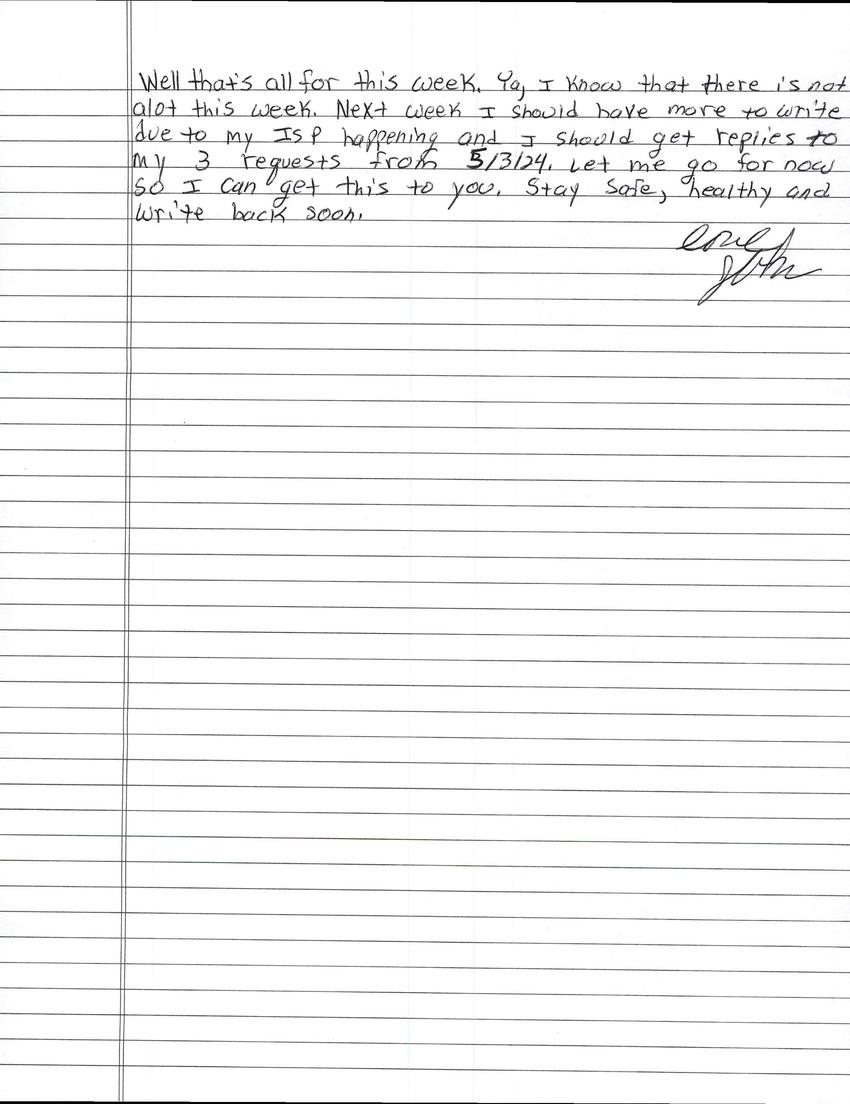 Well that's all for this week. Ya, I know that there is not
alot this week. Next week I should have more to write
due to my ISP happening and I should get replies to
my 3 requests from 5/3/24. Let me go for now
so I can get this to you. Stay safe, healthy and
write back soon.
Love
John